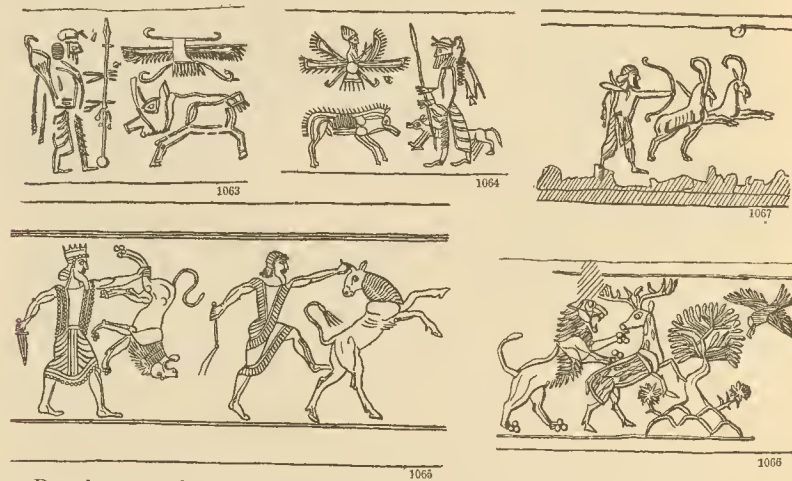 1063
1064
1067
1065
1066